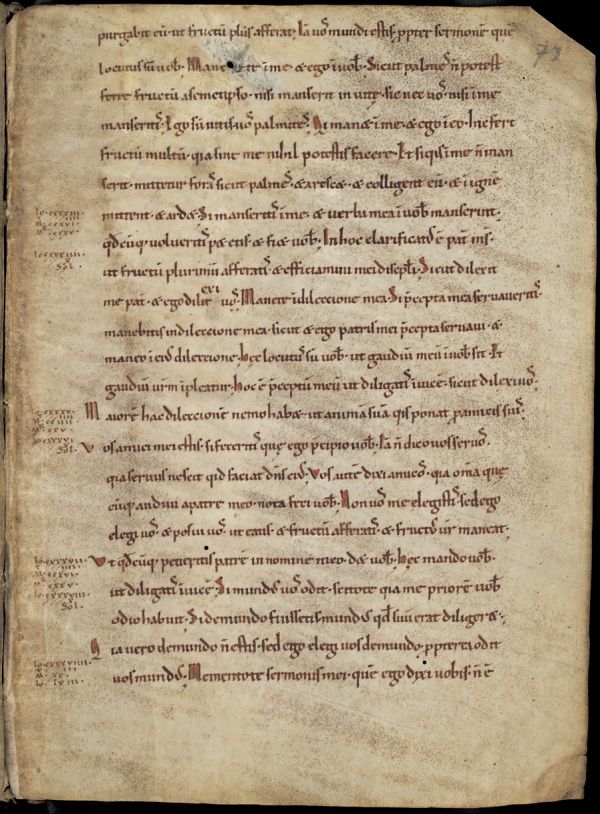 73
purgabit eū· ut fructū plus afferat· Iā uos mundi estis· ppter sermonē quē
locutus sū uob· Manete ī me· & ego ī uob· Sicut palmes ñ potest
ferre fructū a semetipso· nisi manserit in uite· sic nec uos· nisi ī me
manseritis· Ego sū uitis· uos palmites· Qi man& ī me· & ego ī eo· hic fert
fructū multū· qia sine me nihil potestis facere· Et siqis ī me ñ man
serit· mittetur foras sicut palmes· & aresc& · & colligent eū· & ī ignē
mittent· & ard& · Si manseritis ī me· & uerba mea ī uob manserint·
qdcūq uolueritis p&etis & fi& uob· In hoc clarificatus ē pat ms·
ut fructū plurimū afferatis & efficiamini mei discipli· Sicut dilexit
me pat· & ego dilexi uos· Manete ī dileccione mea· Si pcepta mea seruaueritis·
manebitis in dileccione mea· sicut & ego patris mei pcepta seruaui· &
maneo ī eius dileccione· hec locutus sū uob· ut gaudiū meū ī uob sit· Et
gaudiū urm īpleatur· hoc ē pceptū meū ut diligatis īuicē· sicut dilexi uos·
Maiorē hac dileccionē nemo hab& · ut anima suā qis ponat p amicis suis·
Vos amici mei estis· si feceritis que ego pcipio uob· Iā ñ dico uos seruos·
qia seruus nescit qid faciat dns eius· Vos autē dixi amicos· qia oma que
cūq audiui a patre meo· nota feci uob· Non uos me elegistis· sed ego
elegi uos· & posui uos· ut eatis· & fructū afferatis· & fructus ur maneat·
Vt qdcūq petieritis patrē in nomine meo· d& uob· hec mando uob·
ut diligatis īuicē· Si mundus uos odit· scitote qia me priorē uob
odio habuit· Si de mundo fuissetis mundus qd suū erat diliger& ·
Qia uero de mundo ñ estis· sed ego elegi uos de mundo· ppterea odit
uos mundus· Mementote sermonis mei· quē ego dixi uobis· ñ ē